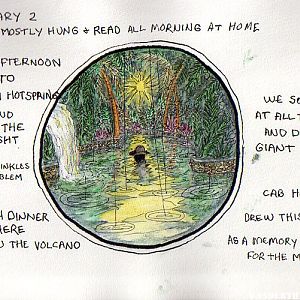 ARY 2
MOSTLY HUNG & READ ALL MORNING AT HOME
AFTERNOON
TO
HOTSPRING
ND
THE
GHT
INKLES
BLEM
H DINNER
HERE
U THE VOLCANO
WE S
AT ALL T
AND D
GIANT
CAB H
DREW THIS
AS A MEMORY
FOR THE M